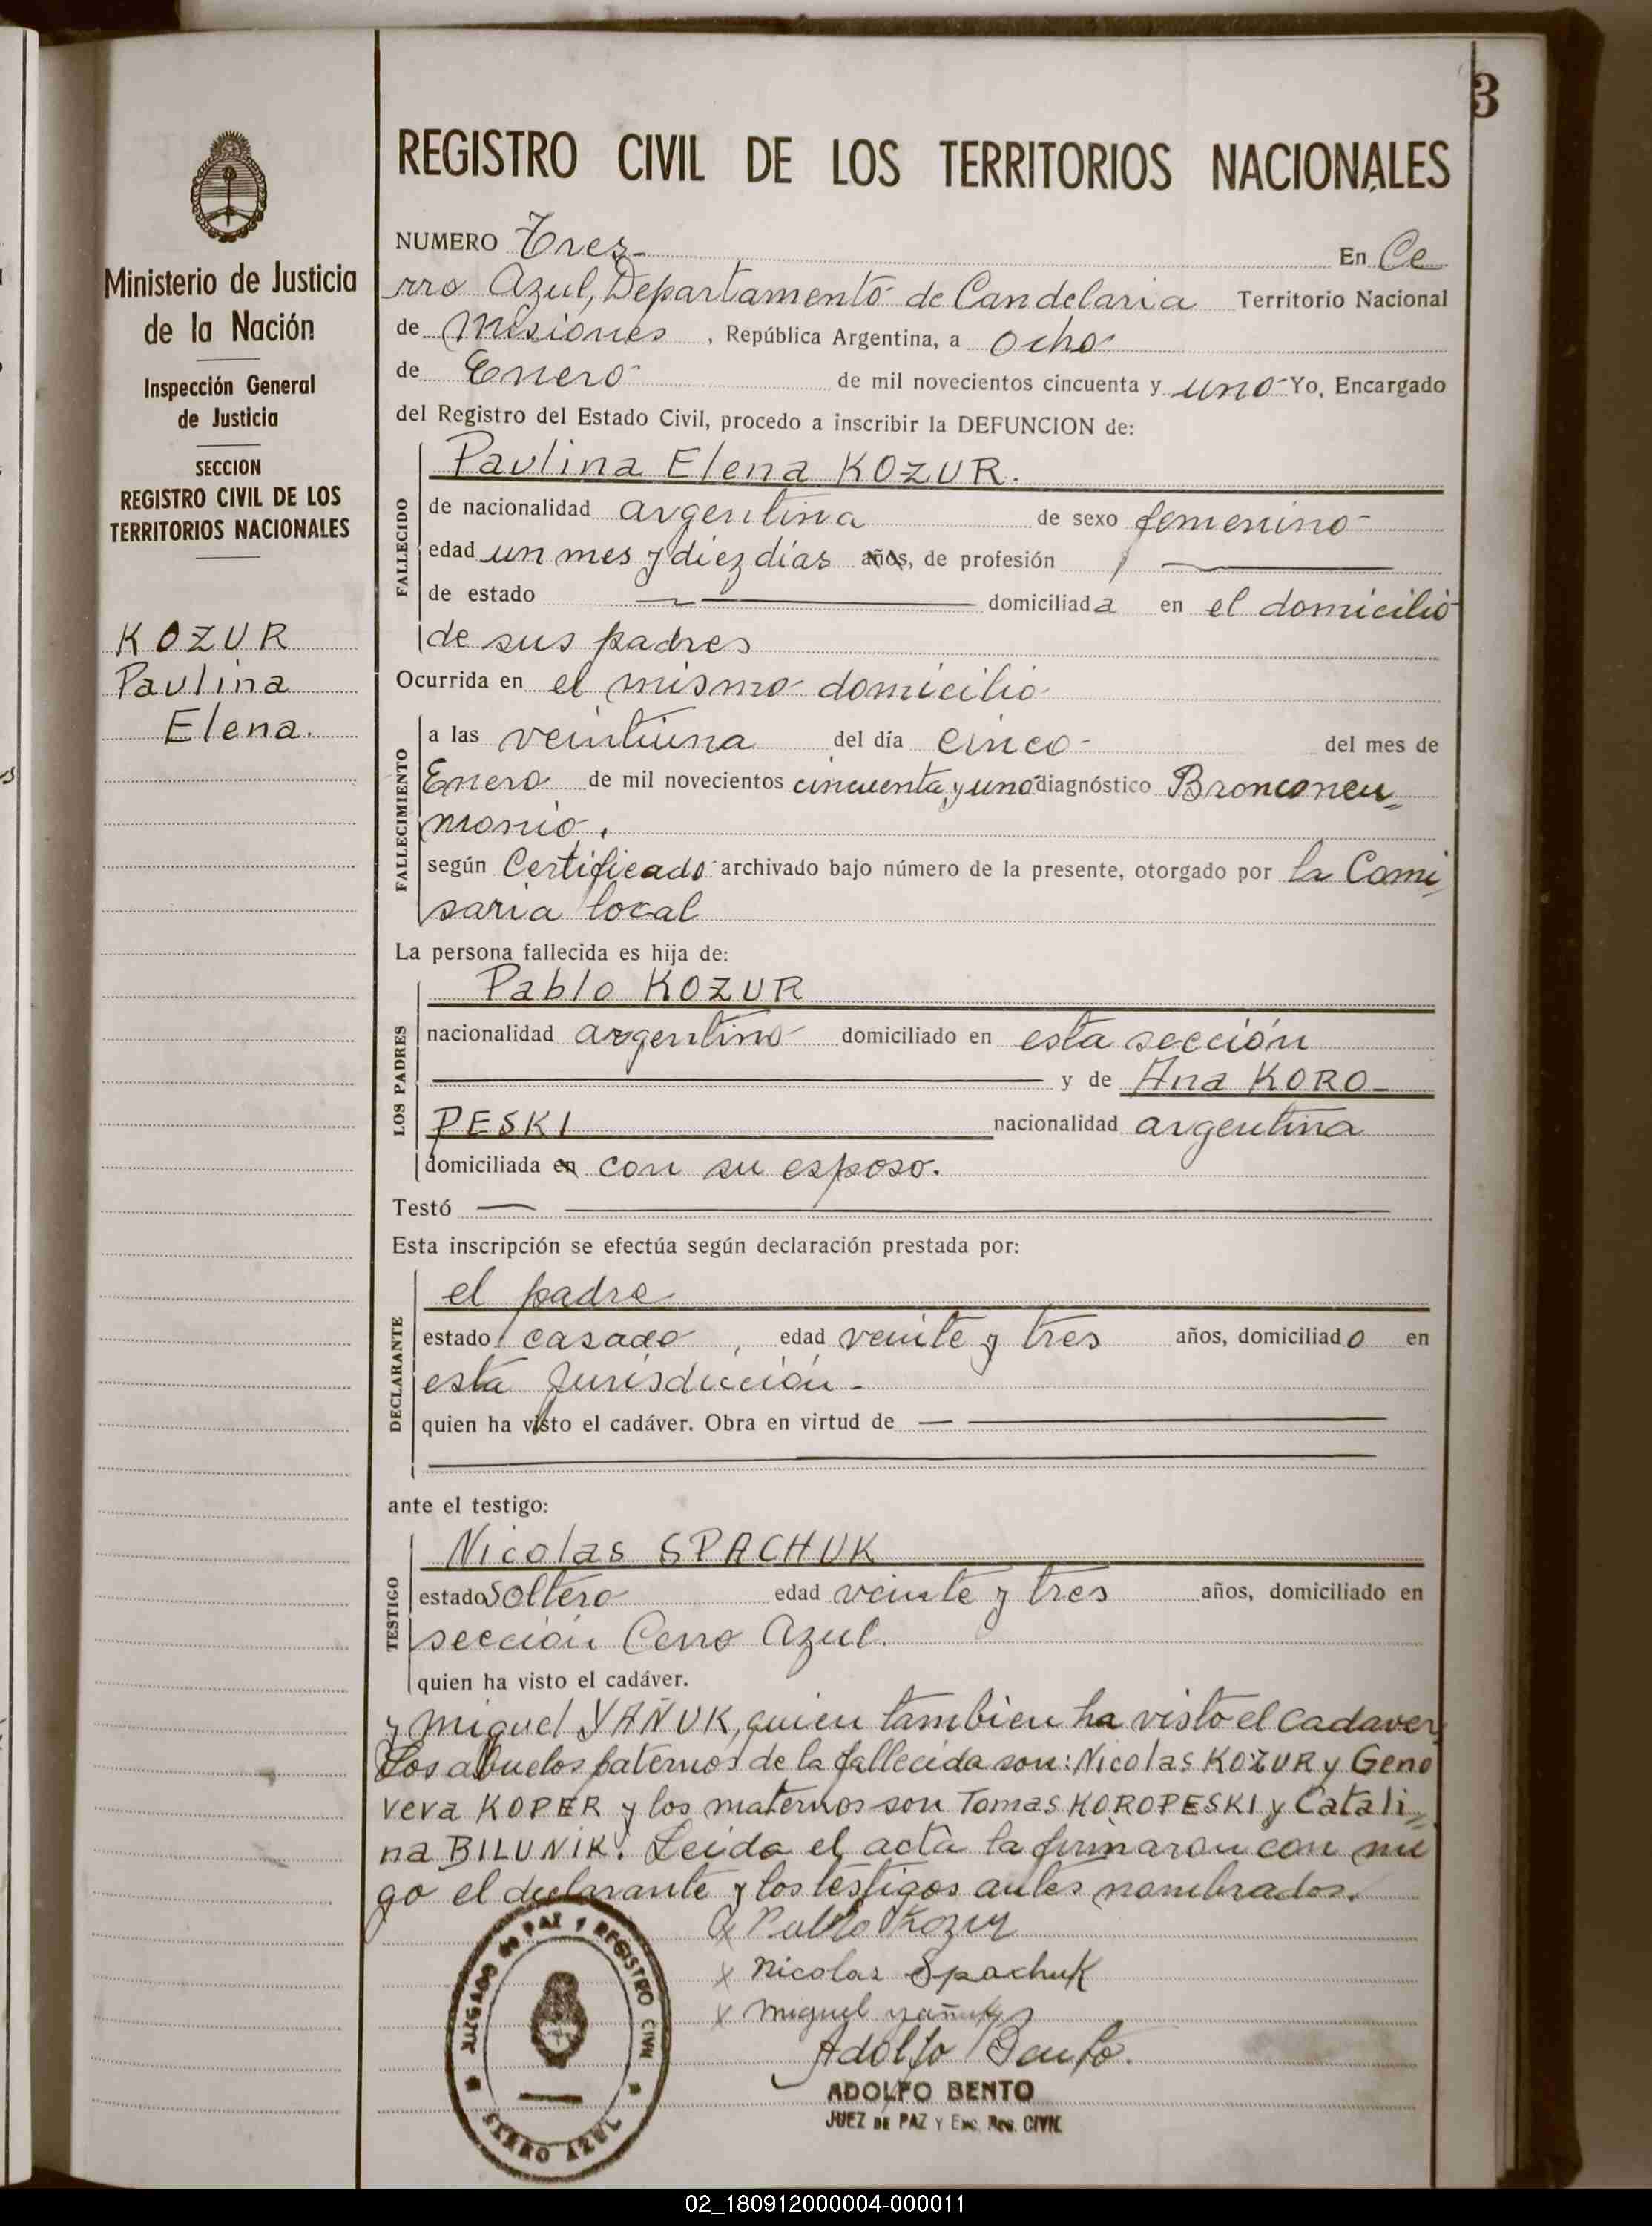 3
REGISTRO CIVIL DE LOS TERRITORIOS NACIONALES
Ministerio de Justicia
de la Nación
Inspección General
de Justicia
SECCION
REGISTRO CIVIL DE LOS
TERRITORIOS NACIONALES
KOZUR
Paulina
Elena.
NUMERO Tres- En Ce
rro Azul, Departamento de Candelaria Territorio Nacional
de Misiones, República Argentina, a ocho
de Enero de mil novecientos cincuenta y uno Yo, Encargado
del Registro del Estado Civil, procedo a inscribir la DEFUNCION de:
Paulina Elena KOZUR.
FALLECIDO
de nacionalidad argentina de sexo femenino
edad un mes y diez días años, de profesión
de estado domiciliada en el domicilio
de sus padres
Ocurrida en el mismo domicilio
FALLECIMIENTO
a las veintiuna del día cinco- del mes de
Enero de mil novecientos cincuenta y uno diagnóstico Bronconeu=
monio.
según Certificado archivado bajo número de la presente, otorgado por la Comi
saria local
La persona fallecida es hija de:
Pablo KOZUR
LOS PADRES
nacionalidad argentino domiciliado en esta sección
y de Ana KORO-
PESKI nacionalidad argentina
domiciliada en con su esposo.
Testó
Esta inscripción se efectúa según declaración prestada por:
el padre
DECLARANTE
estado casado, edad veinte y tres años, domiciliado en
esta Jurisdicción-
quien ha visto el cadáver. Obra en virtud de
ante el testigo:
Nicolas SPACHUK
TESTIGO
estado soltero edad veinte y tres años, domiciliado en
sección Cerro Azul.
quien ha visto el cadáver.
y miguel YAÑUK, quien tambien ha visto el cadaver
Los abuelos paternos de la fallecida son: Nicolas KOZUR y Geno
veva KOPER y los maternos son Tomas KOROPESKI y Catali=
na BILUNIK. Leida el acta la firmaron con mi
go el declarante y los testigos antes nombrados.
x Pablo Kozur
x Nicolas Spachuk
x miguel yañuk
Adolfo Bento.
ADOLFO BENTO
JUEZ DE PAZ Y Enc. Reg. CIVIL
JUZGADO DE PAZ Y REGISTRO CIVIL
CERRO AZUL
02_180912000004-000011